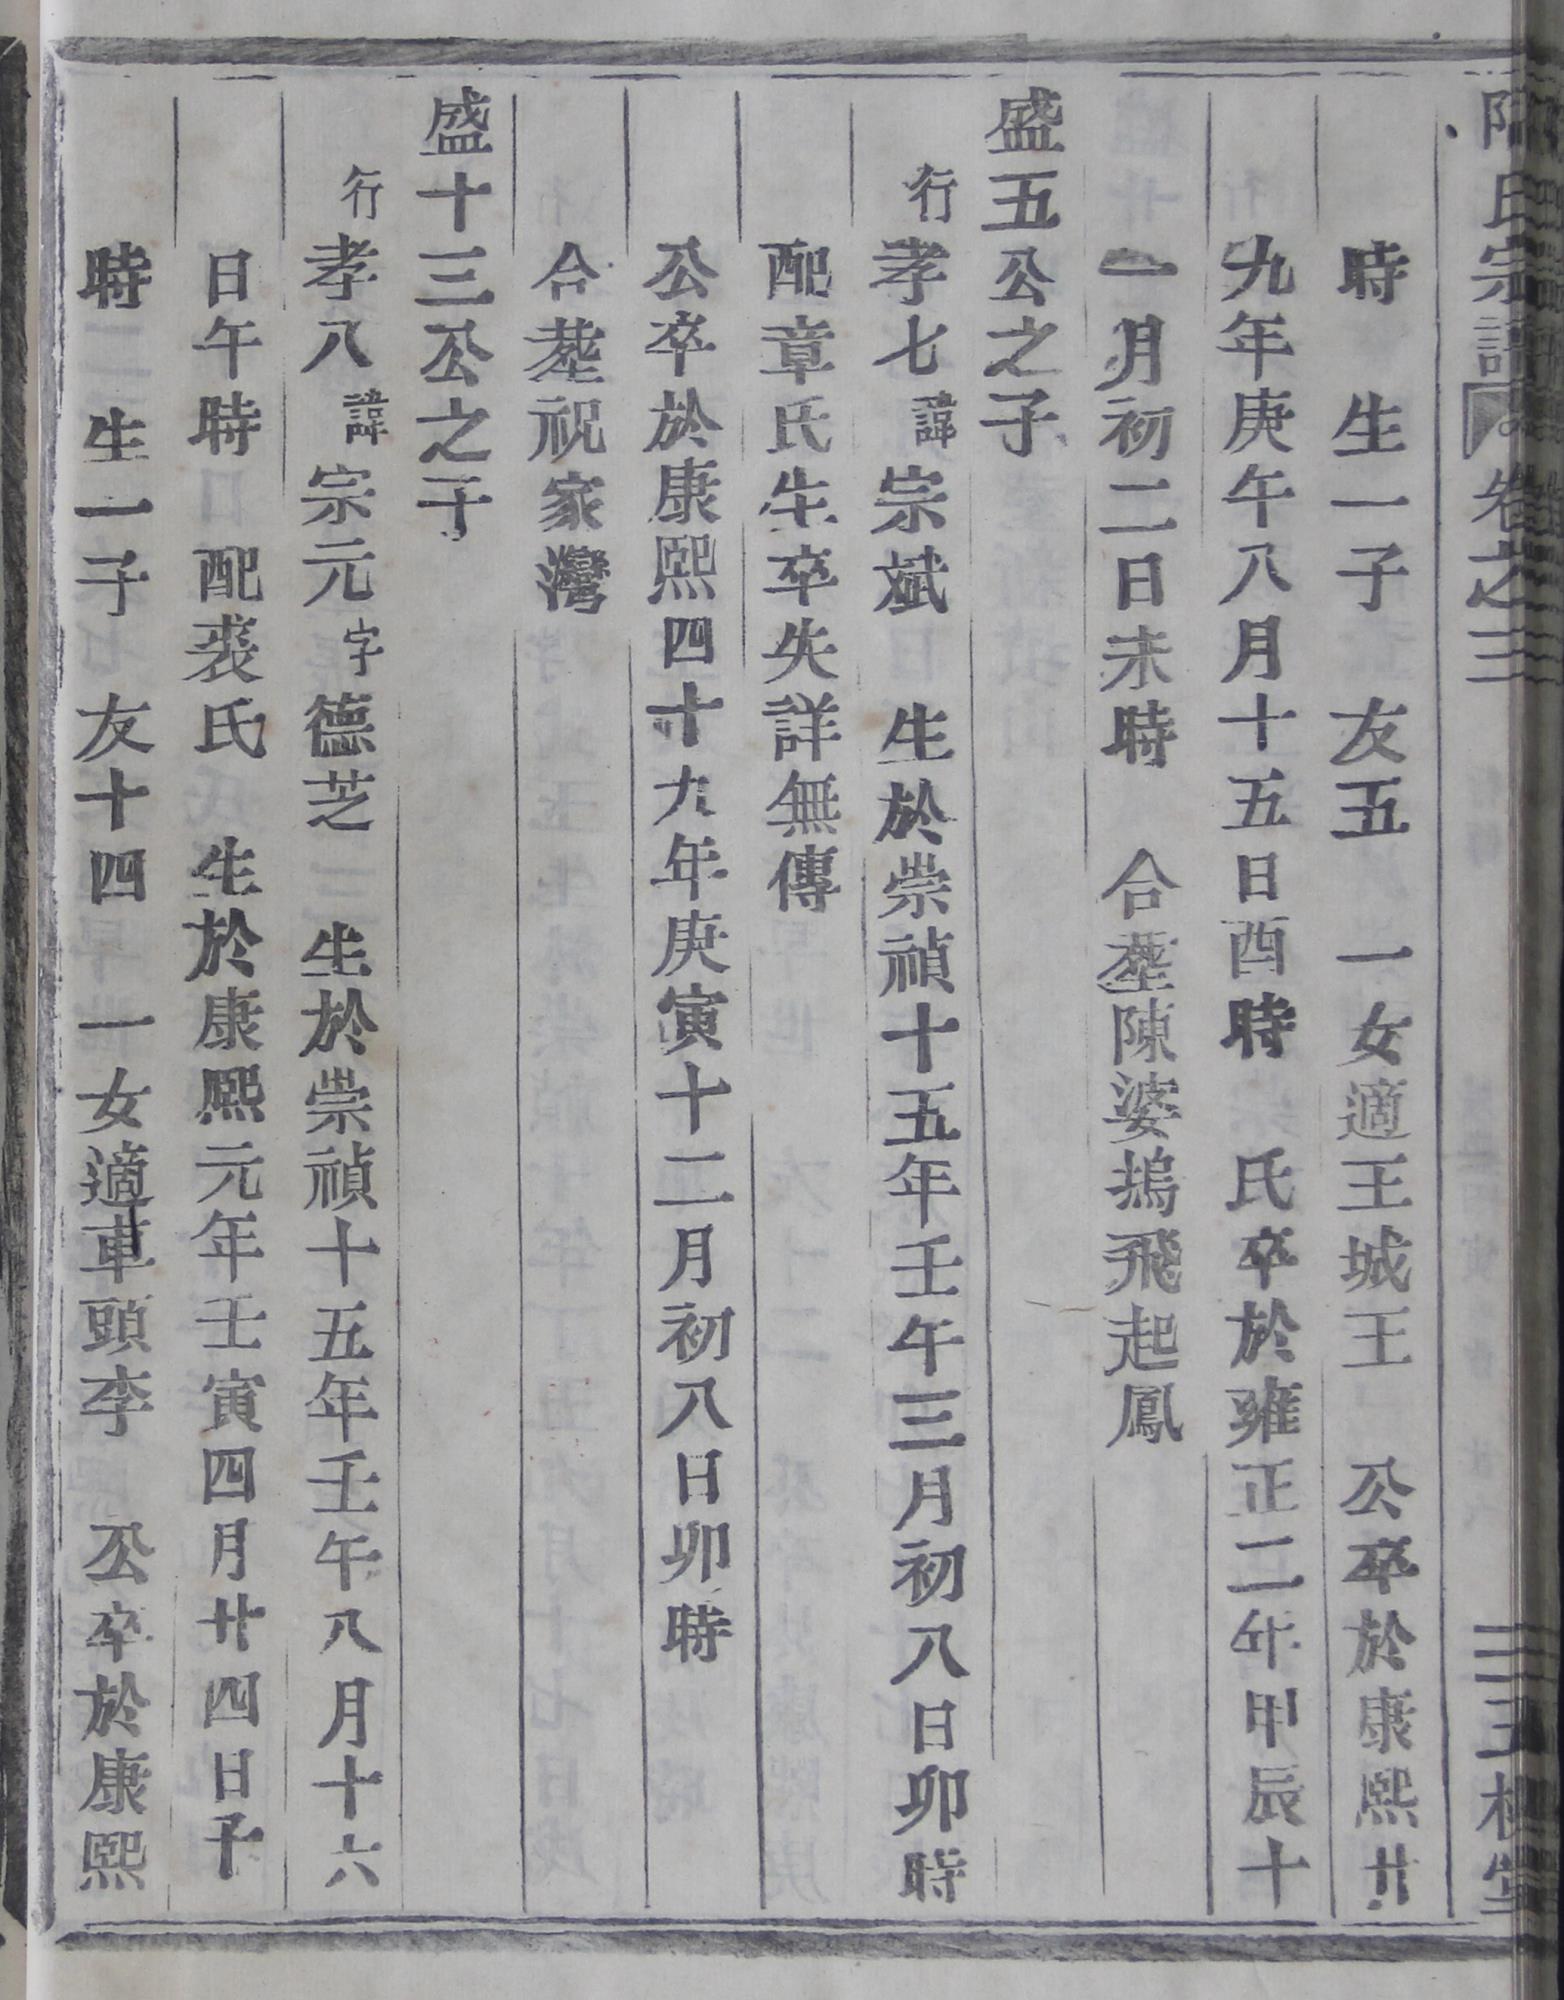 氏宗譜 卷之三 三 槐堂
時 生一子 友五 一女適王城王 公卒於康熙廿
九年庚午八月十五日酉時 氏卒於雍正二年甲辰十
一月初二日未時 合塟陳婆塢飛起鳳
盛五公之子
行孝七諱宗斌 生於崇禎十五年壬午三月初八日卯時
配章氏生卒失詳無傳
公卒於康熙四十九年庚寅十二月初八日卯時
合塟祝家灣
盛十三公之子
行孝八諱宗元字德芝 生於崇禎十五年壬午八月十六
日午時 配裘氏 生於康熙元年壬寅四月廿四日子
時 生一子 友十四 一女適車頭李 公卒於康熙